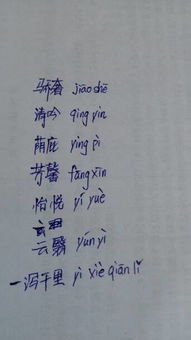 骄奢 jiāo shē
清吟 qīng yín
荫庇 yìng pì
芳馨 fāng xīn
怡悦 yí yuè
云翳 yún yì
一泻千里 yì xiè qiān lǐ